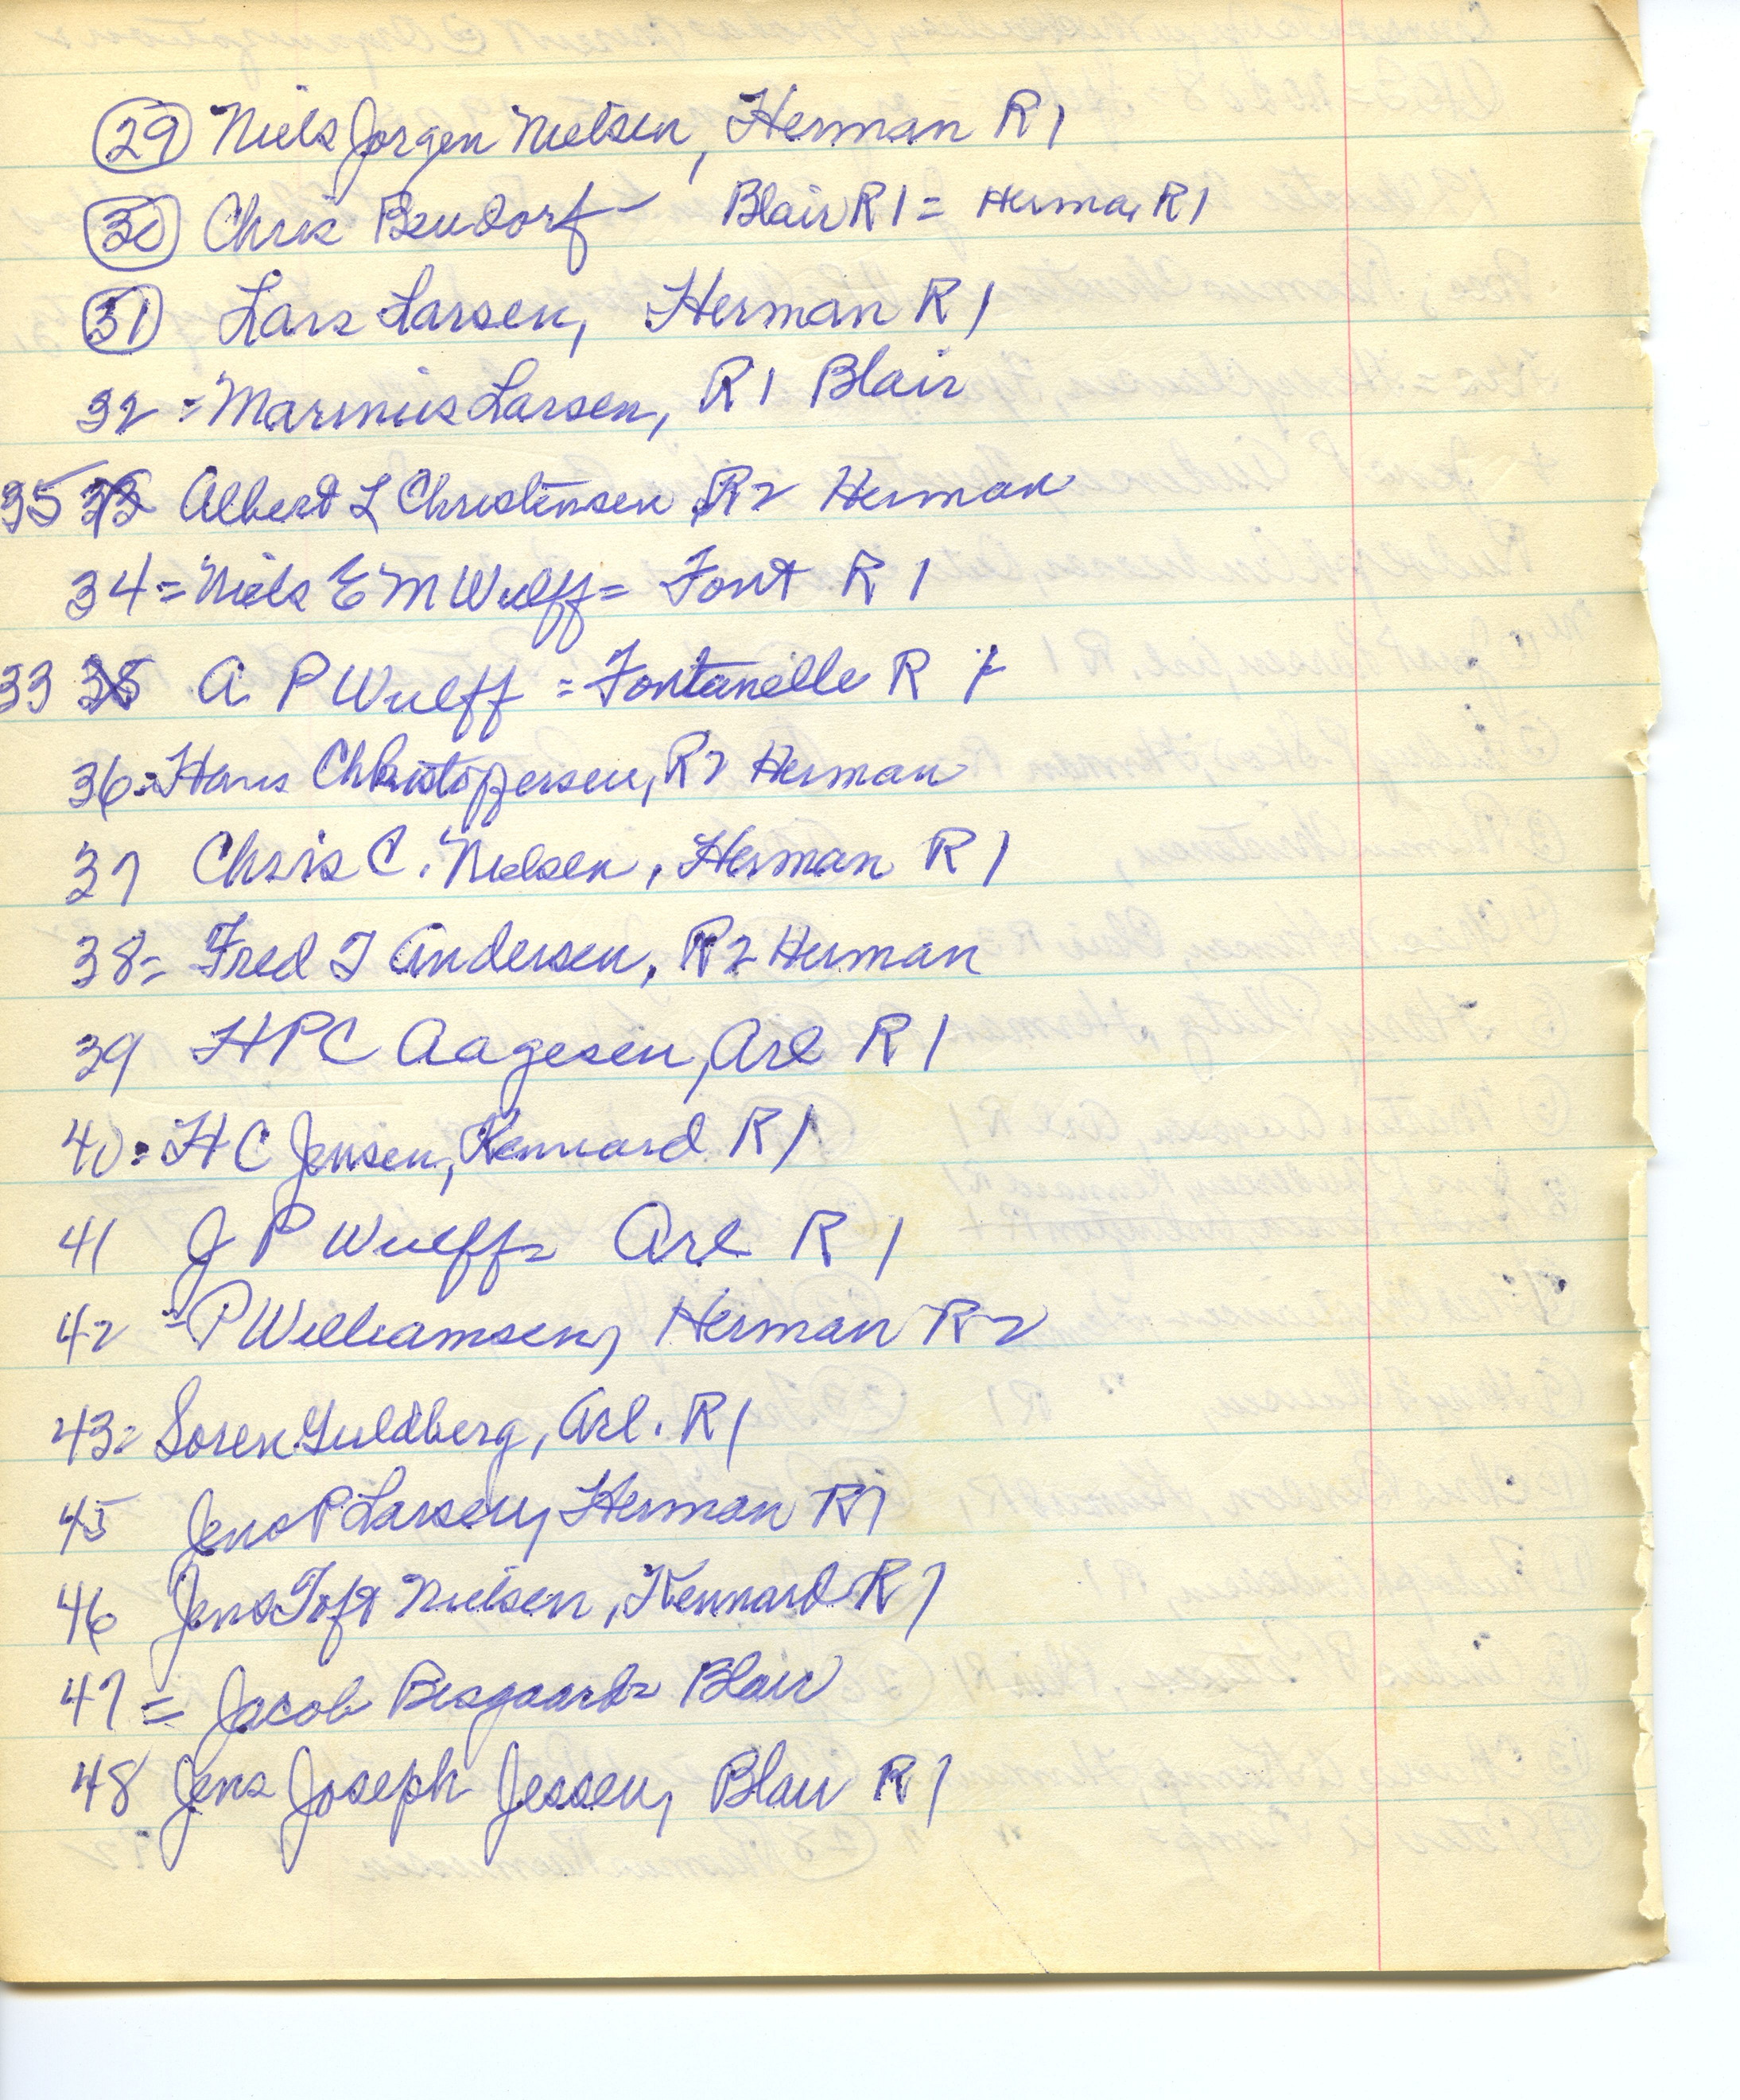 29 Niels Jorgen Nielsen, Herman R1
30 Chris Bendorf Blair R1 = Herman R1
31 Lars Larsen, Herman R1
32 = Marinus Larsen, R1 Blair
35 33 Albert L Christensen R2 Herman
34 = Niels E M Wulff = Font R 1
33 35 A P Wulff = Fontanelle R 1
36 = Hans Christopersen, R2 Herman
37 Chris C. Nielsen, Herman R1
38 = Fred T Andersen, R2 Herman
39 H P C Aagesen, Arl R1
40 = H C Jensen, Kennard R1
41 J P Wulff = Arl R1
42 = P Williamsen, Herman R2
43 = Soren Guldberg, Arl. R1
45 Jens P Larsen, Herman R1
46 Jens Toft Nielsen, Kennard R1
47 = Jacob Bisgaard = Blair
48 Jens Joseph Jessen, Blair R1